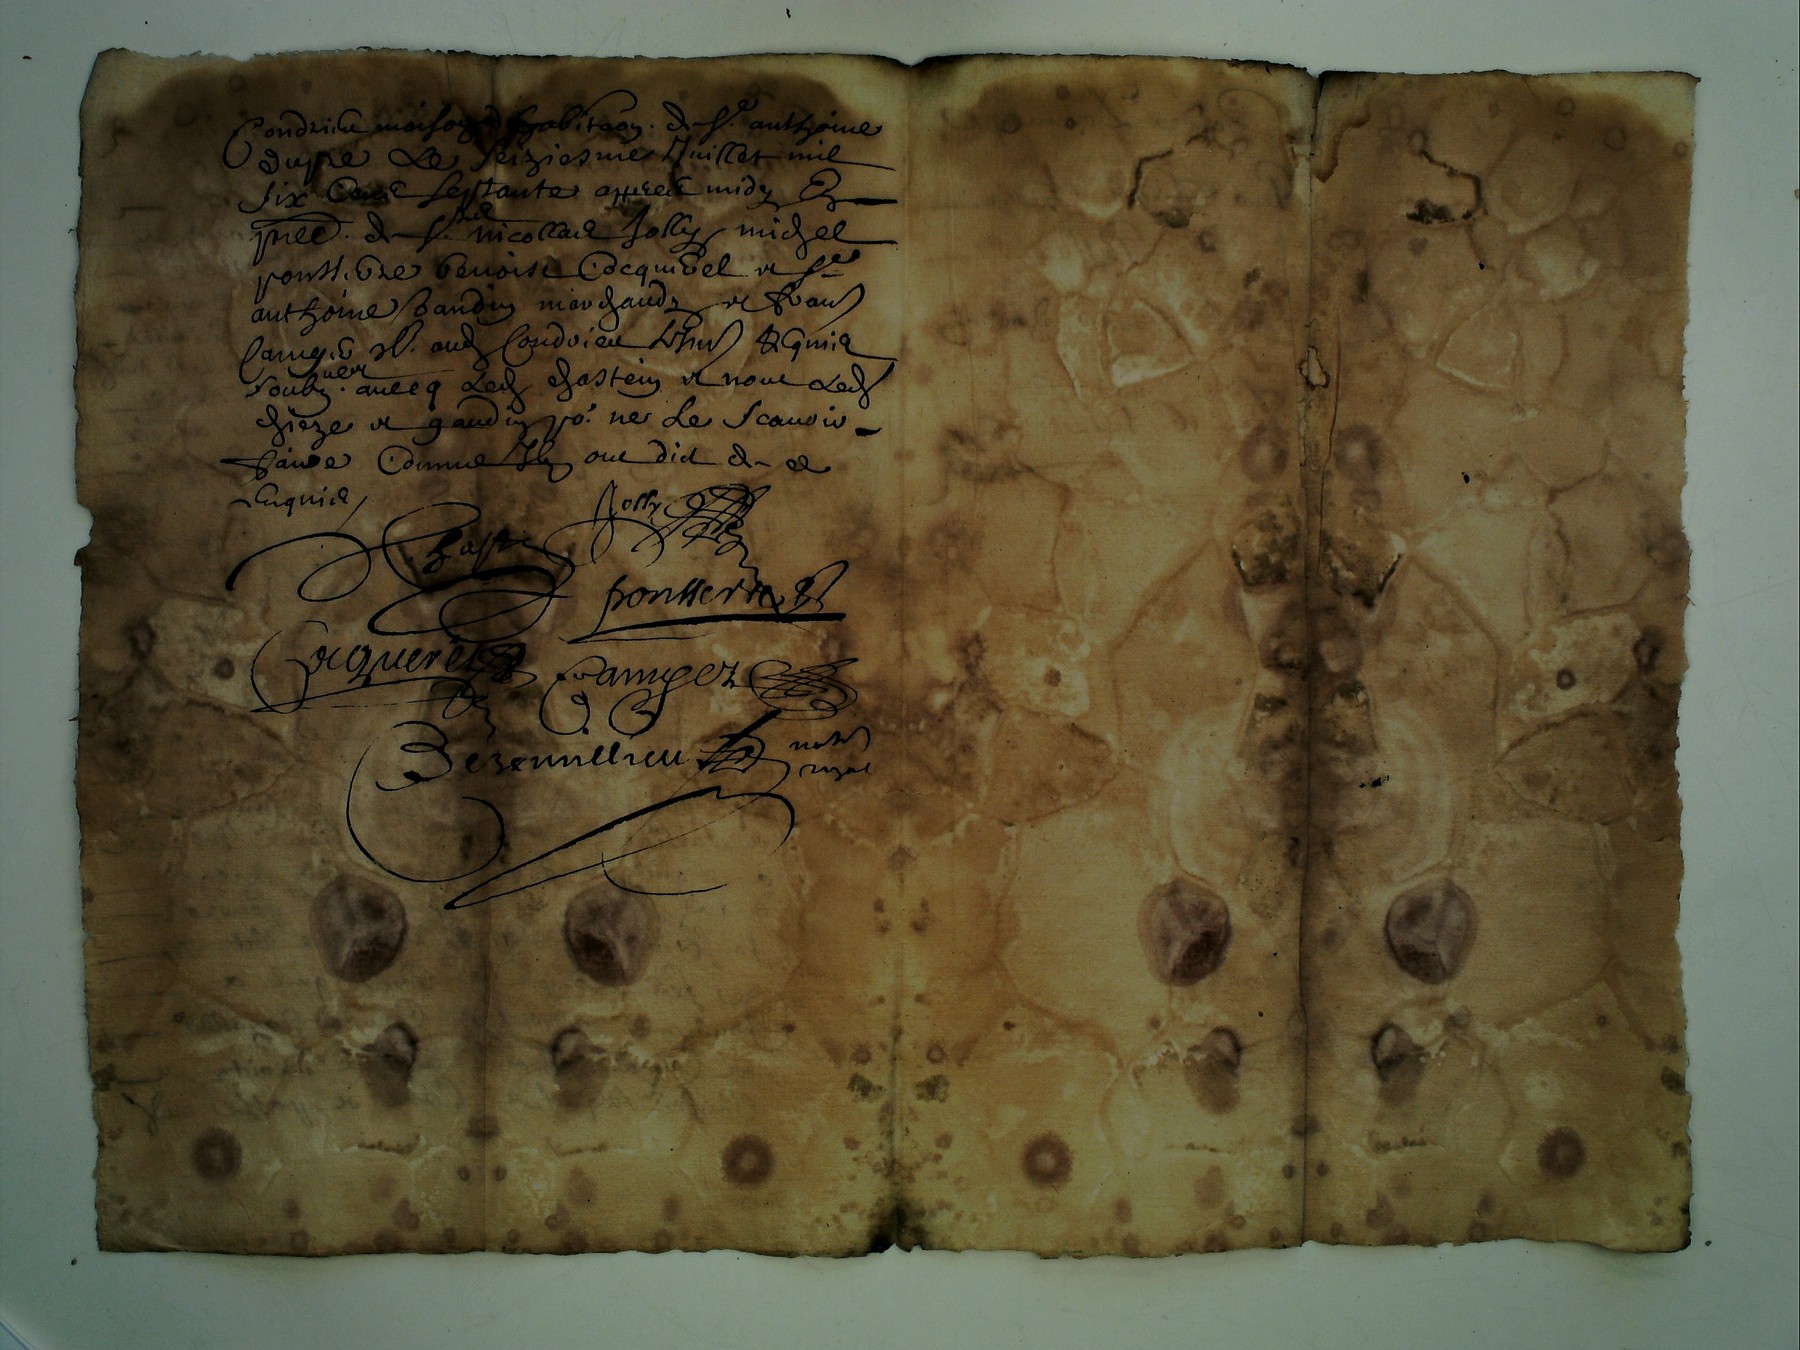 Condrieu maison d habitaon. de Sr. anthoine
dupre Le Seiziesme Juillet mil
six Cent septante appres midy En
pnce. de Sr. nicollas Jolly michel
ponthevre benoist Cocquerel et Sr
anthoine baudin marchandz et
Camyer aud Condrieu Requis
Soubz. avecq Led chastein et nous Led
chieze et gaudin po. ne Le Scavoir
faire Comme Ilz ont dict de ce
Enquis
Jolly
Chastein
pontthevre
Cocquerel
Camyer
Bezenullieu
notr
royal